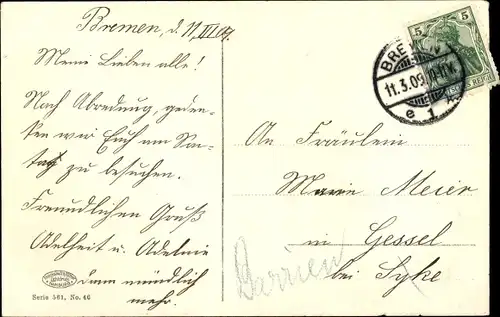 Bremen, d. 11. III. 09.
Meine Lieben alle!
Nach Abredung, geden-
ken wir Euch am Son-
tag zu besuchen.
Freundlichen Gruß
Adelheit u. Adelmie
dann mündlich
mehr.
Serie 561, No. 46
5 5
BREMEN
11.3.09
e 1
REICH
An Fräulein
Marie Meier
in Gessel
bei Syke
Barrien